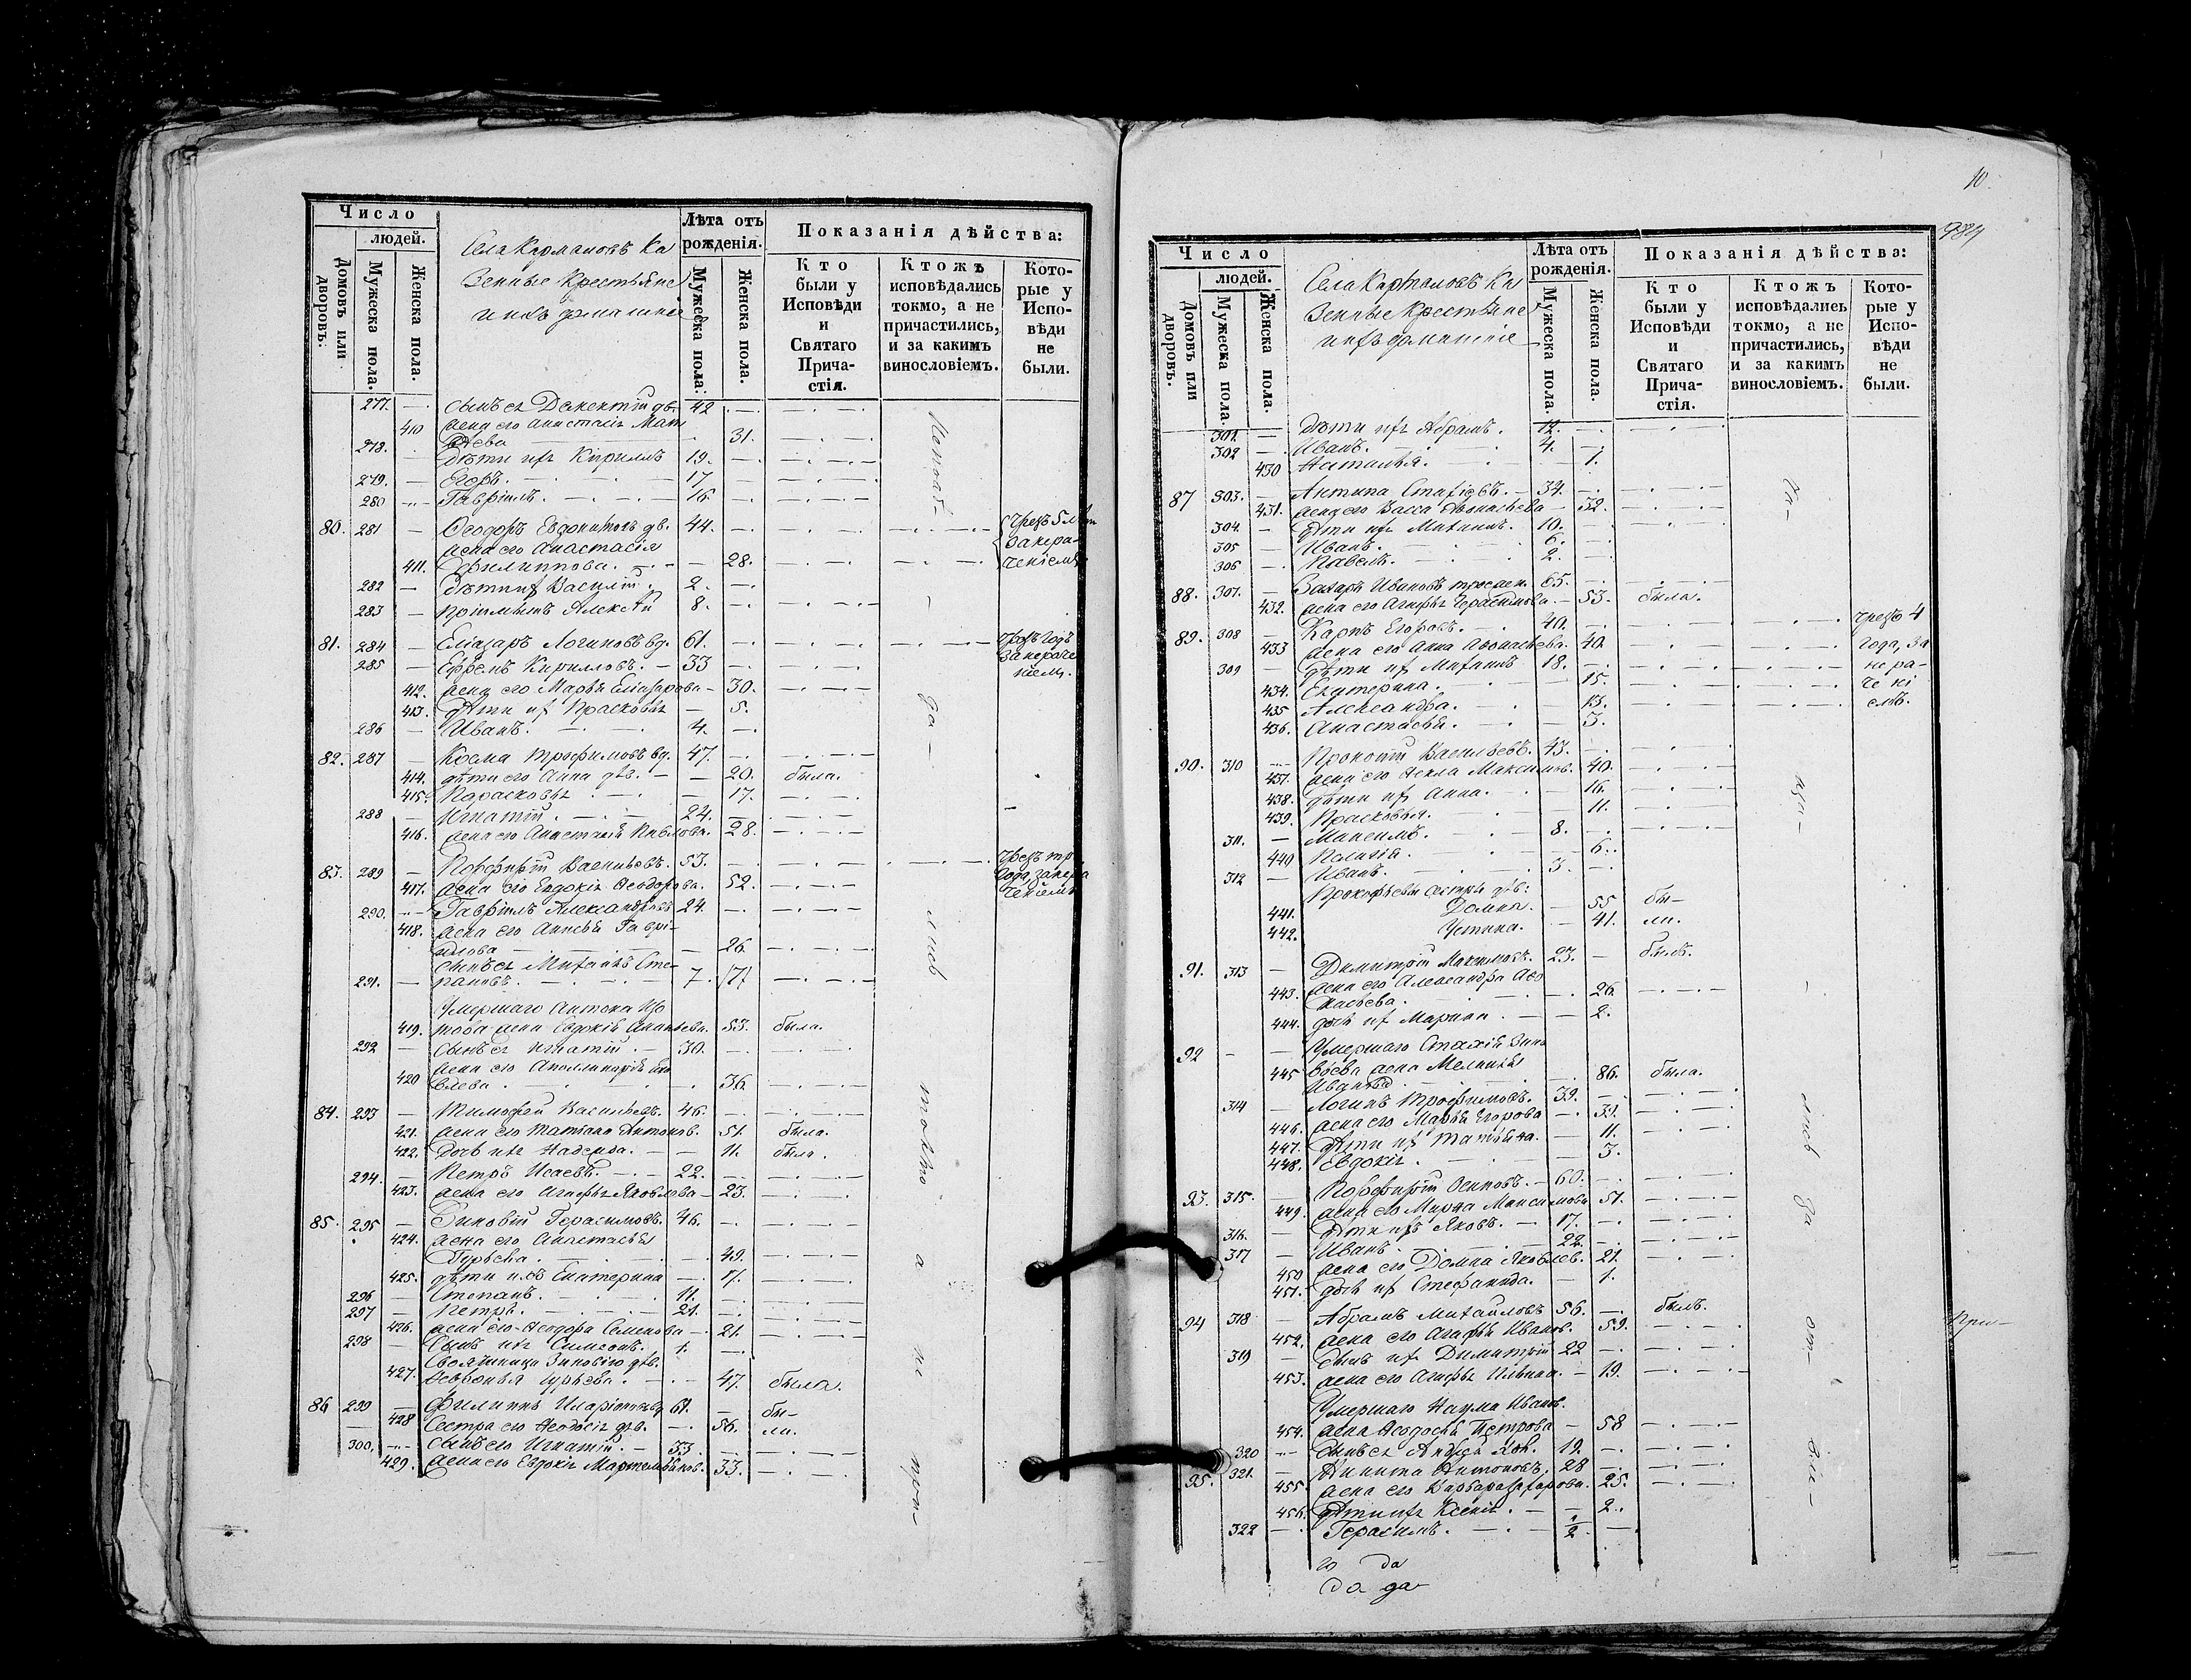 Число
людей.
Домовъ или дворовъ.
Мужеска пола.
Женска пола.
Села Кармановъ Ка
зенные крестьяне
и ихъ домашніе
Лѣта отъ рожденія.
Мужеска пола.
Женска пола.
Показанія дѣйства:
Кто были у Исповѣди и Святаго Причастія.
Ктожъ исповѣдались токмо, а не причастились, и за какимъ винословіемъ.
Которые у Исповѣди не были.
277. — сынъ ея Дементій 42 —
410 жена его Анастасія Мат
ѳѣева 31.
278. дѣти ихъ Кириллъ 19. —
279. — Егоръ. 17
280 — Гавріилъ. 16 —
80. 281 — Ѳеодоръ Евдокимовъ 44. — чрезъ 5 лѣтъ
жена его Анастасія за нера-
411. Филиппова. 28. ченіемъ
282 — дѣти ихъ Василій. 2. —
283 — Пріимышъ Алексѣй 8. —
81. 284 — Еліазаръ Логиновъ вд. 61. — чрезъ годъ
285 — Ефремъ Кирилловъ. 33 — за нераче
412. жена его Марья Еліазарова 30. ніемъ.
413. дѣти их Прасковья 5.
286 — Иванъ. 4. —
82. 287 — Косма Трофимовъ вд. 47. —
414. дѣти его Анна дѣв. — 20. была.
415. Парасковья — 17.
288 — Игнатій 24. —
416. жена его Анастасія Павлова. 28.
83. 289 — Порфирій Васильевъ. 53. — чрезъ три
417. жена его Евдокія Ѳеодорова. 52. года, за нера
290. — Гавріилъ Александровъ 24. — ченіемъ
418. жена его Анисья Гаврі-
илова 26
сынъ ея Михаилъ Сте-
291. — пановъ. 7
Умершаго Антона
419. това жена Евдокія Ананьева. 53. была.
292 — сынъ ея Игнатій 30. —
жена его Аполлинарія
420 влева 36.
84. 293 — Тимофей Васильевъ. 46. —
421. жена его Татіана Антонов. 51. была.
422. дочь ихъ Надежда. 11. была.
294. — Петръ Исаевъ. 22. —
423. жена его Агафья Яковлева 23.
85. 295 — Зиновій Герасимовъ. 46. —
424. жена его Анастасья
Гурьева 49.
425. дѣти ихъ Екатерина — 17.
296 — Степанъ. 11. —
297 — Петръ. 21. —
426. жена его Ѳеодора Семенова 21.
298 — сынъ ихъ Симеонъ. 1. —
Свояченица Зиновію дѣв.
427. Февронья Гурьева. 47. была.
86 299 — Филиппъ Иларіоновъ 61. — бы-
428 Сестра его Ѳеодосія дѣв. — 56. ли.
300. — сынъ его Игнатій. 33 —
429. жена его Евдокія Мартемьянов. 33.
Исповѣ-
да-
лись
токмо
а
не
прои
10.
984
Число
людей.
Домовъ или дворовъ.
Мужеска пола.
Женска пола.
Села Кармановъ Ка
зенные крестьяне
ихъ домашніе
Лѣта отъ рожденія.
Мужеска пола.
Женска пола.
Показанія дѣйства:
Кто были у Исповѣди и Святаго Причастія.
Ктожъ исповѣдались токмо, а не причастились, и за какимъ винословіемъ.
Которые у Исповѣди не были.
301. — дѣти ихъ Абрамъ. 12. —
302 — Иванъ. 4. —
430 Наталья. — 1.
87 303. — Антипа 34. —
431. жена его Васса Аѳонасьева 32.
304. — дѣти ихъ Михаилъ. 10. —
305 — Иванъ. 6. —
306 — Павелъ. 2. —
88. 307. — Захаръ Ивановъ 65. —
432. жена его Агафья Герасимова 53. была.
89. 308 — Карпъ Егоровъ. 40. — чрезъ 4
433 жена его Анна Аѳонасьева. 40. года, за
309 — дѣти их Михаилъ 18. — нера-
434. Екатерина. 15. чені
435 Александра. 13. емъ.
436. Анастасья. — 3.
90. 310 — Прокопій Васильевъ. 43. —
437. жена его Ѳекла Максимов. 40.
438. дѣти их Анна. — 16.
439. Прасковья. — 11.
311. — Максимъ. 8. —
440 Пелагія. — 6.
312 — Иванъ. 3. —
Прокофьевы сестры дѣв:
441. Домна. — 55 бы-
442. Устина. — 41. ли.
91. 313 — Димитрій Максимовъ. 23. — былъ.
443. жена его Александра Аѳо
насьева. 26.
444. дочь их Марина. — 2.
92 — — Умершаго Зино
445 вьева жена Меланья
Иванова 86. была.
314 — Логинъ Трофимовъ. 39. —
446. жена его Марья Егорова — 39.
447. дѣти их Татьяна. — 11.
448. Евдокія. — 3.
93. 315. — Порфирій Осиповъ. 60. —
449. жена его Марѳа Максимова 51.
316. — дѣти ихъ Яковъ. 17. —
317 — Иванъ 22. —
450 жена его Домна Яковлев. 21.
451. дочь их Стефанида. — 1.
94 318 — Абрамъ Михайловъ 56. — былъ.
452. жена его Агафья Иванов. 59.
319 — сынъ их Димитрій 22 —
453. жена его Агафья Ильина. — 19.
Умершаго Наума Иванов.
454. жена Ѳеодосья Петрова — 58
320 — сынъ ея Андрей 19. —
95. 321. — Никита Антоновъ. 28 —
455. жена его Варвара Захарова. 25.
456. дѣти ихъ Ксенія. — 2.
322 — Герасимъ. 2 —
ча-
сти-
лись
за
от-
да
При-